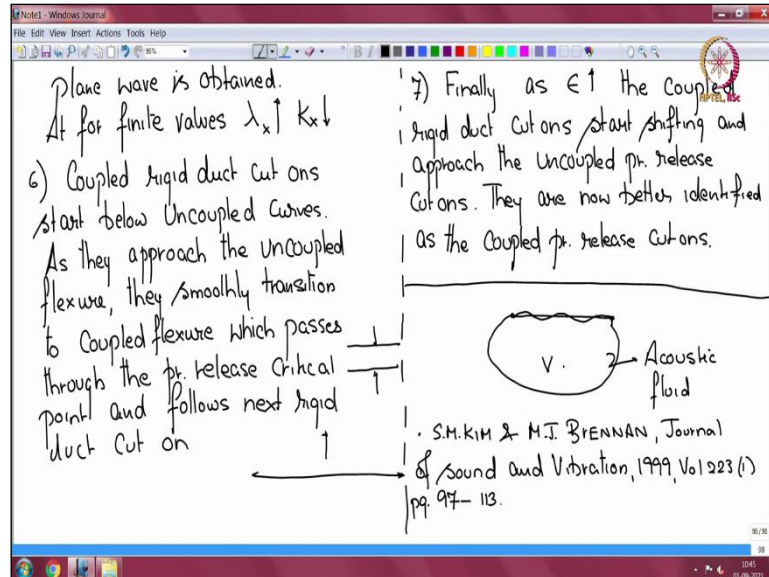 Note1 - Windows Journal
File Edit View Insert Actions Tools Help
95%
B I
plane wave is obtained.
At for finite values λx↑ kx↓
6) Coupled rigid duct cut ons
start below Uncoupled Curves.
As they approach the uncoupled
flexure, they smoothly transition
to Coupled flexure which passes
through the pr. release Critical
point and follows next rigid
duct cut on
7) Finally as ∈↑ the Coupled
rigid duct cut ons start shifting and
approach the uncoupled pr. release
cut ons. They are now better identified
as the Coupled pr. release cut ons.
V.
Acoustic
fluid
. S.M.KIM & M.J. BRENNAN, Journal
of Sound and Vibration, 1999, Vol 223 (1)
pg. 97 – 113.
NPTEL, IISc
98/98
98
10:45
01-09-2021